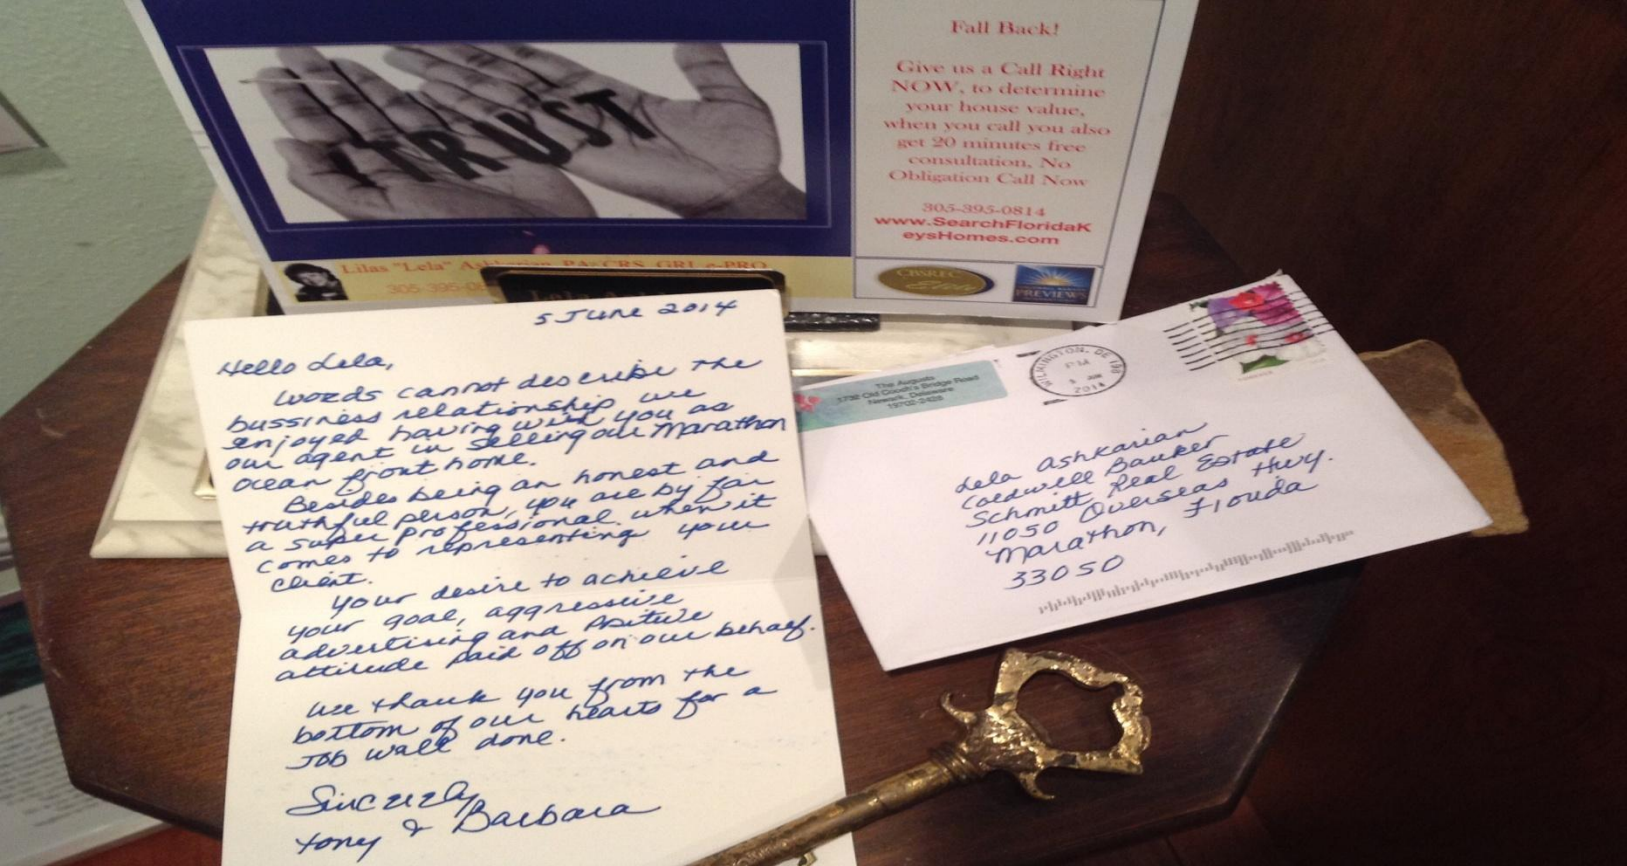 TRUST
Fall Back!
Give us a Call Right
NOW, to determine
your house value,
when you call you also
get 20 minutes free
consultation, No
Obligation Call Now
305-395-0814
www.SearchFloridaK
eysHomes.com
Lilas "Lela" Ashkarian, PA, CRS, GRI, e-PRO
305-395-0
CBSREC
Elite
PREVIEWS
5 June 2014
Hello Lela,
Words cannot describe the
bussiness relationship we
enjoyed having with you as
our agent in selling our Marathon
ocean front home.
Besides being an honest and
truthful person, you are by far
a super professional when it
comes to representing your
client.
Your desire to achieve
your goal, aggressive
advertising and positive
attitude paid off on our behalf.
We thank you from the
bottom of our hearts for a
Job well done.
Sincerely
Tony & Barbara
The Augusts
1732 Old Cooch's Bridge Road
Newark, Delaware
19702-2428
WILMINGTON, DE 198
PM
5 JUN
2014
FOREVER
Lela Ashkarian
Coldwell Banker
Schmitt Real Estate
11050 Overseas Hwy.
Marathon, Florida
33050